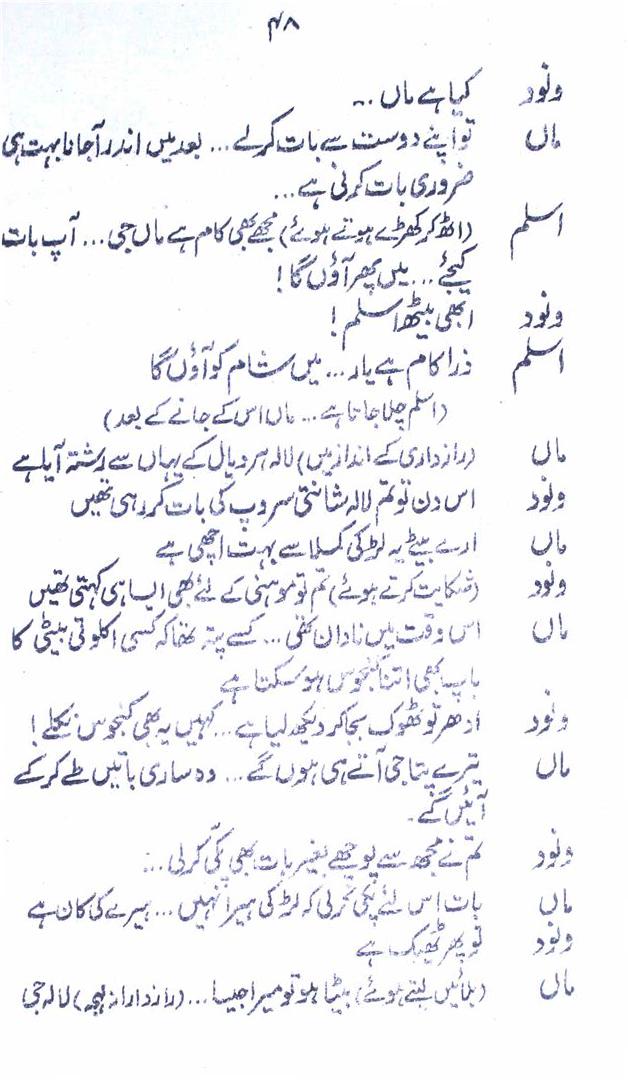 ۴۸
ونود کیا ہے ماں ...
ماں تو اپنے دوست سے بات کرلے... بعد میں اندر آجانا بہت ہی
ضروری بات کرنی ہے...
اسلم (اٹھ کر کھڑے ہوتے ہوئے) مجھے بھی کام ہے ماں جی... آپ بات
کیجئے... میں پھر آؤں گا!
ونود ابھی بیٹھ اسلم!
اسلم ذرا کام ہے یار... میں شام کو آؤں گا
(اسلم چلا جاتا ہے... ماں اس کے جانے کے بعد)
ماں (رازداری کے انداز میں) لالہ ہردیال کے یہاں سے رشتہ آیا ہے
ونود اس دن تو تم لالہ شانتی سروپ کی بات کررہی تھیں
ماں ارے بیٹے یہ لڑکی کملا سے بہت اچھی ہے
ونود (شکایت کرتے ہوئے) تم تو موہنی کے لئے بھی ایسا ہی کہتی تھیں
ماں اس وقت میں نادان تھی... کسے پتہ تھا کہ کسی اکلوتی بیٹی کا
باپ بھی اتنا کنجوس ہوسکتا ہے
ونود ادھر تو ٹھوک بجا کر دیکھ لیا ہے... کہیں یہ بھی کنجوس نکلے!
ماں تیرے پتا جی آتے ہی ہوں گے... وہ ساری باتیں طے کرکے
آئیں گے۔
ونود تم نے مجھ سے پوچھے بغیر بات بھی پکی کرلی...
ماں بات اس لئے پکی کرلی کہ لڑکی ہیرا نہیں... ہیرے کی کان ہے
ونود تو پھر ٹھیک ہے
ماں (بلائیں لیتے ہوئے) بیٹا ہو تو میرا جیسا... (رازدارانہ لہجہ) لالہ جی